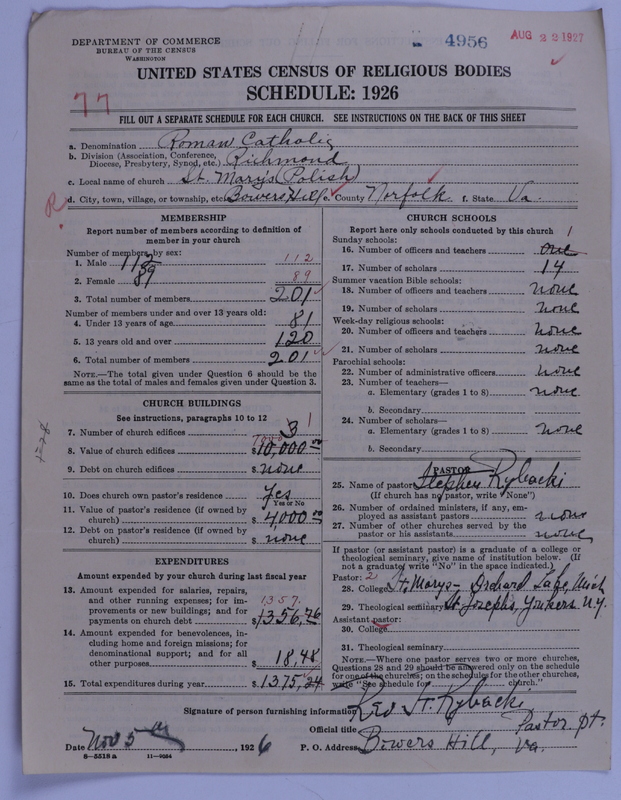 DEPARTMENT OF COMMERCE
BUREAU OF THE CENSUS
WASHINGTON
4956
AUG 22 1927
UNITED STATES CENSUS OF RELIGIOUS BODIES
SCHEDULE: 1926
77
FILL OUT A SEPARATE SCHEDULE FOR EACH CHURCH. SEE INSTRUCTIONS ON THE BACK OF THIS SHEET
a. Denomination Roman Catholic
b. Division (Association, Conference, Diocese, Presbytery, Synod, etc.) Richmond
c. Local name of church St. Mary's (Polish)
R
d. City, town, village, or township, etc. Bowers Hill e. County Norfolk f. State Va.
MEMBERSHIP
Report number of members according to definition of
member in your church
Number of members by sex:
1. Male 112 112
2. Female 89 89
3. Total number of members 201
Number of members under and over 13 years old:
4. Under 13 years of age 81
5. 13 years old and over 120
6. Total number of members 201
NOTE.—The total given under Question 6 should be the
same as the total of males and females given under Question 3.
CHURCH BUILDINGS
See instructions, paragraphs 10 to 12
7. Number of church edifices 3 1
8. Value of church edifices $10,000.00
9. Debt on church edifices $ none
10. Does church own pastor's residence Yes
Yes or No
11. Value of pastor's residence (if owned by
church) $ 4000.00
12. Debt on pastor's residence (if owned by
church) $ none
EXPENDITURES
Amount expended by your church during last fiscal year
13. Amount expended for salaries, repairs,
and other running expenses; for im-
provements or new buildings; and for
payments on church debt $1356,76
1357.
14. Amount expended for benevolences, in-
cluding home and foreign missions; for
denominational support; and for all
other purposes $ 18,48
15. Total expenditures during year $1375,24
CHURCH SCHOOLS
Report here only schools conducted by this church
Sunday schools:
16. Number of officers and teachers one 1
17. Number of scholars 14
Summer vacation Bible schools:
18. Number of officers and teachers none
19. Number of scholars none
Week-day religious schools:
20. Number of officers and teachers none
21. Number of scholars none
Parochial schools:
22. Number of administrative officers none
23. Number of teachers—
a. Elementary (grades 1 to 8) none
b. Secondary
24. Number of scholars—
a. Elementary (grades 1 to 8) none
b. Secondary
PASTOR
25. Name of pastor Stephen Rybacki
(If church has no pastor, write "None")
26. Number of ordained ministers, if any, em-
ployed as assistant pastors none
27. Number of other churches served by the
pastor or his assistants none
If pastor (or assistant pastor) is a graduate of a college or
theological seminary, give name of institution below. (If
not a graduate write "No" in the space indicated.)
Pastor: 2
28. College St. Marys - Orchard Lake, Mich
29. Theological seminary St. Josephs, Yonkers N.Y.
Assistant pastor:
30. College
31. Theological seminary
NOTE.—Where one pastor serves two or more churches,
Questions 28 and 29 should be answered only on the schedule
for one of the churches; on the schedules for the other churches,
write "See schedule for church."
Signature of person furnishing information Rev. St. Rybacki
Official title Pastor
Date Nov 5th, 1926 P. O. Address Bowers Hill, Va.
8—5518 a 11—9034